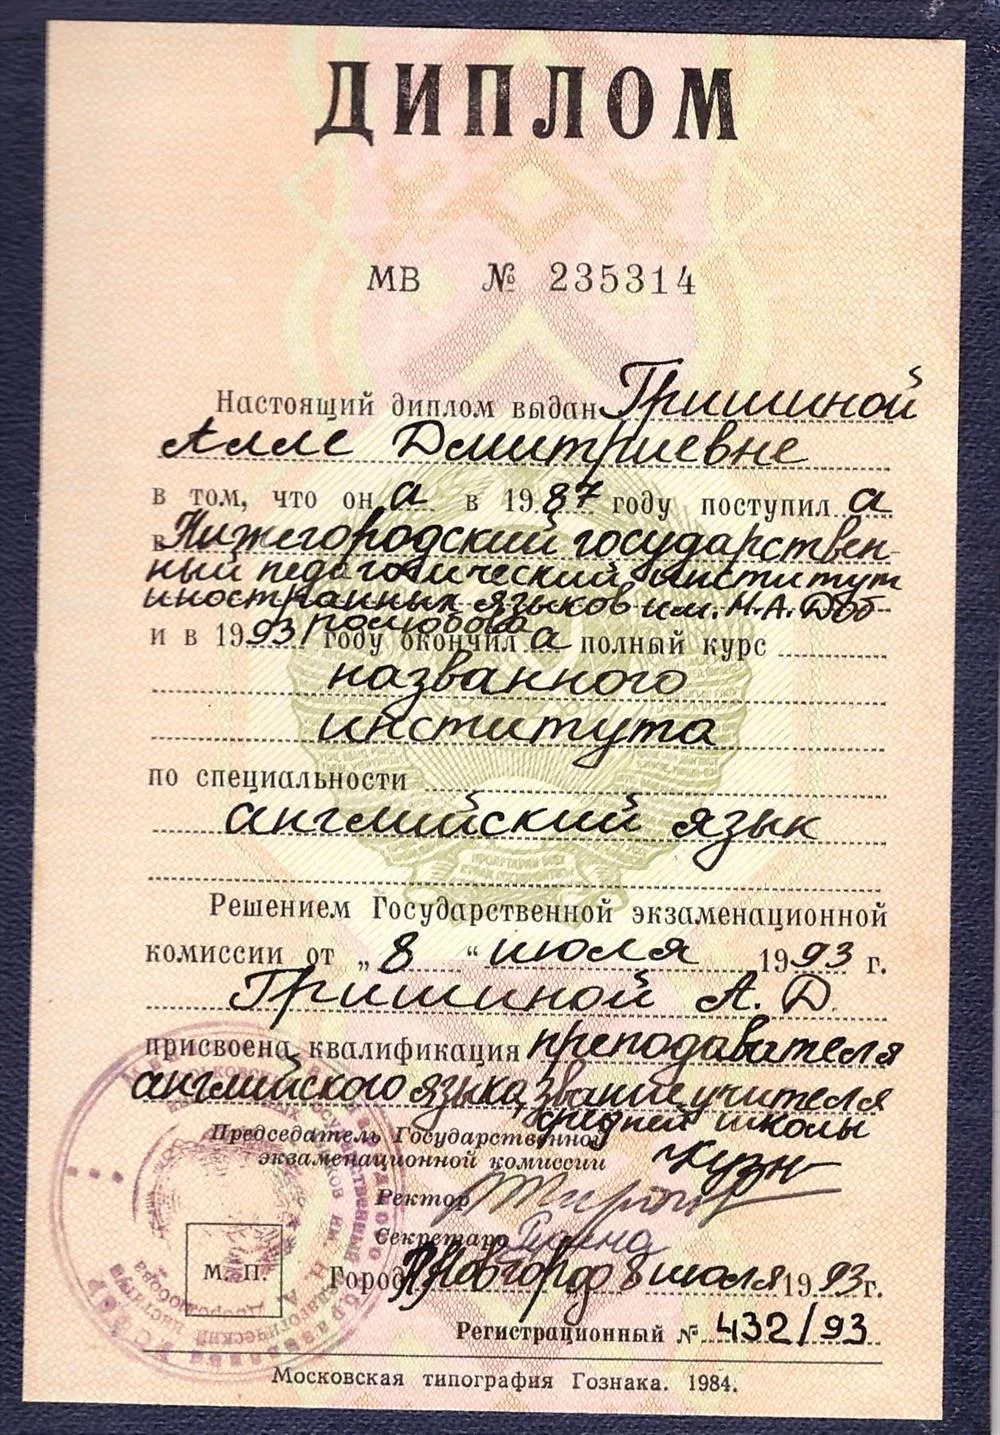 ДИПЛОМ
МВ № 235314
Настоящий диплом выдан Гришиной
Алле Дмитриевне
в том, что он а в 1987 году поступил а
в Нижегородский государствен-
ный педагогический институт
иностранных языков им. Н.А. Доб-
ролюбова
и в 1993 году окончил а полный курс
названного
института
по специальности
английский язык
Решением Государственной экзаменационной
комиссии от „8“ июля 1993 г.
Гришиной А. Д.
присвоена квалификация преподавателя
английского языка, звание учителя
средней школы
Председатель Государственной
экзаменационной комиссии
Ректор
Секретарь
М. П.
Город Н. Новгород 8 июля 1993 г.
Регистрационный № 432/93
Московская типография Гознака. 1984.